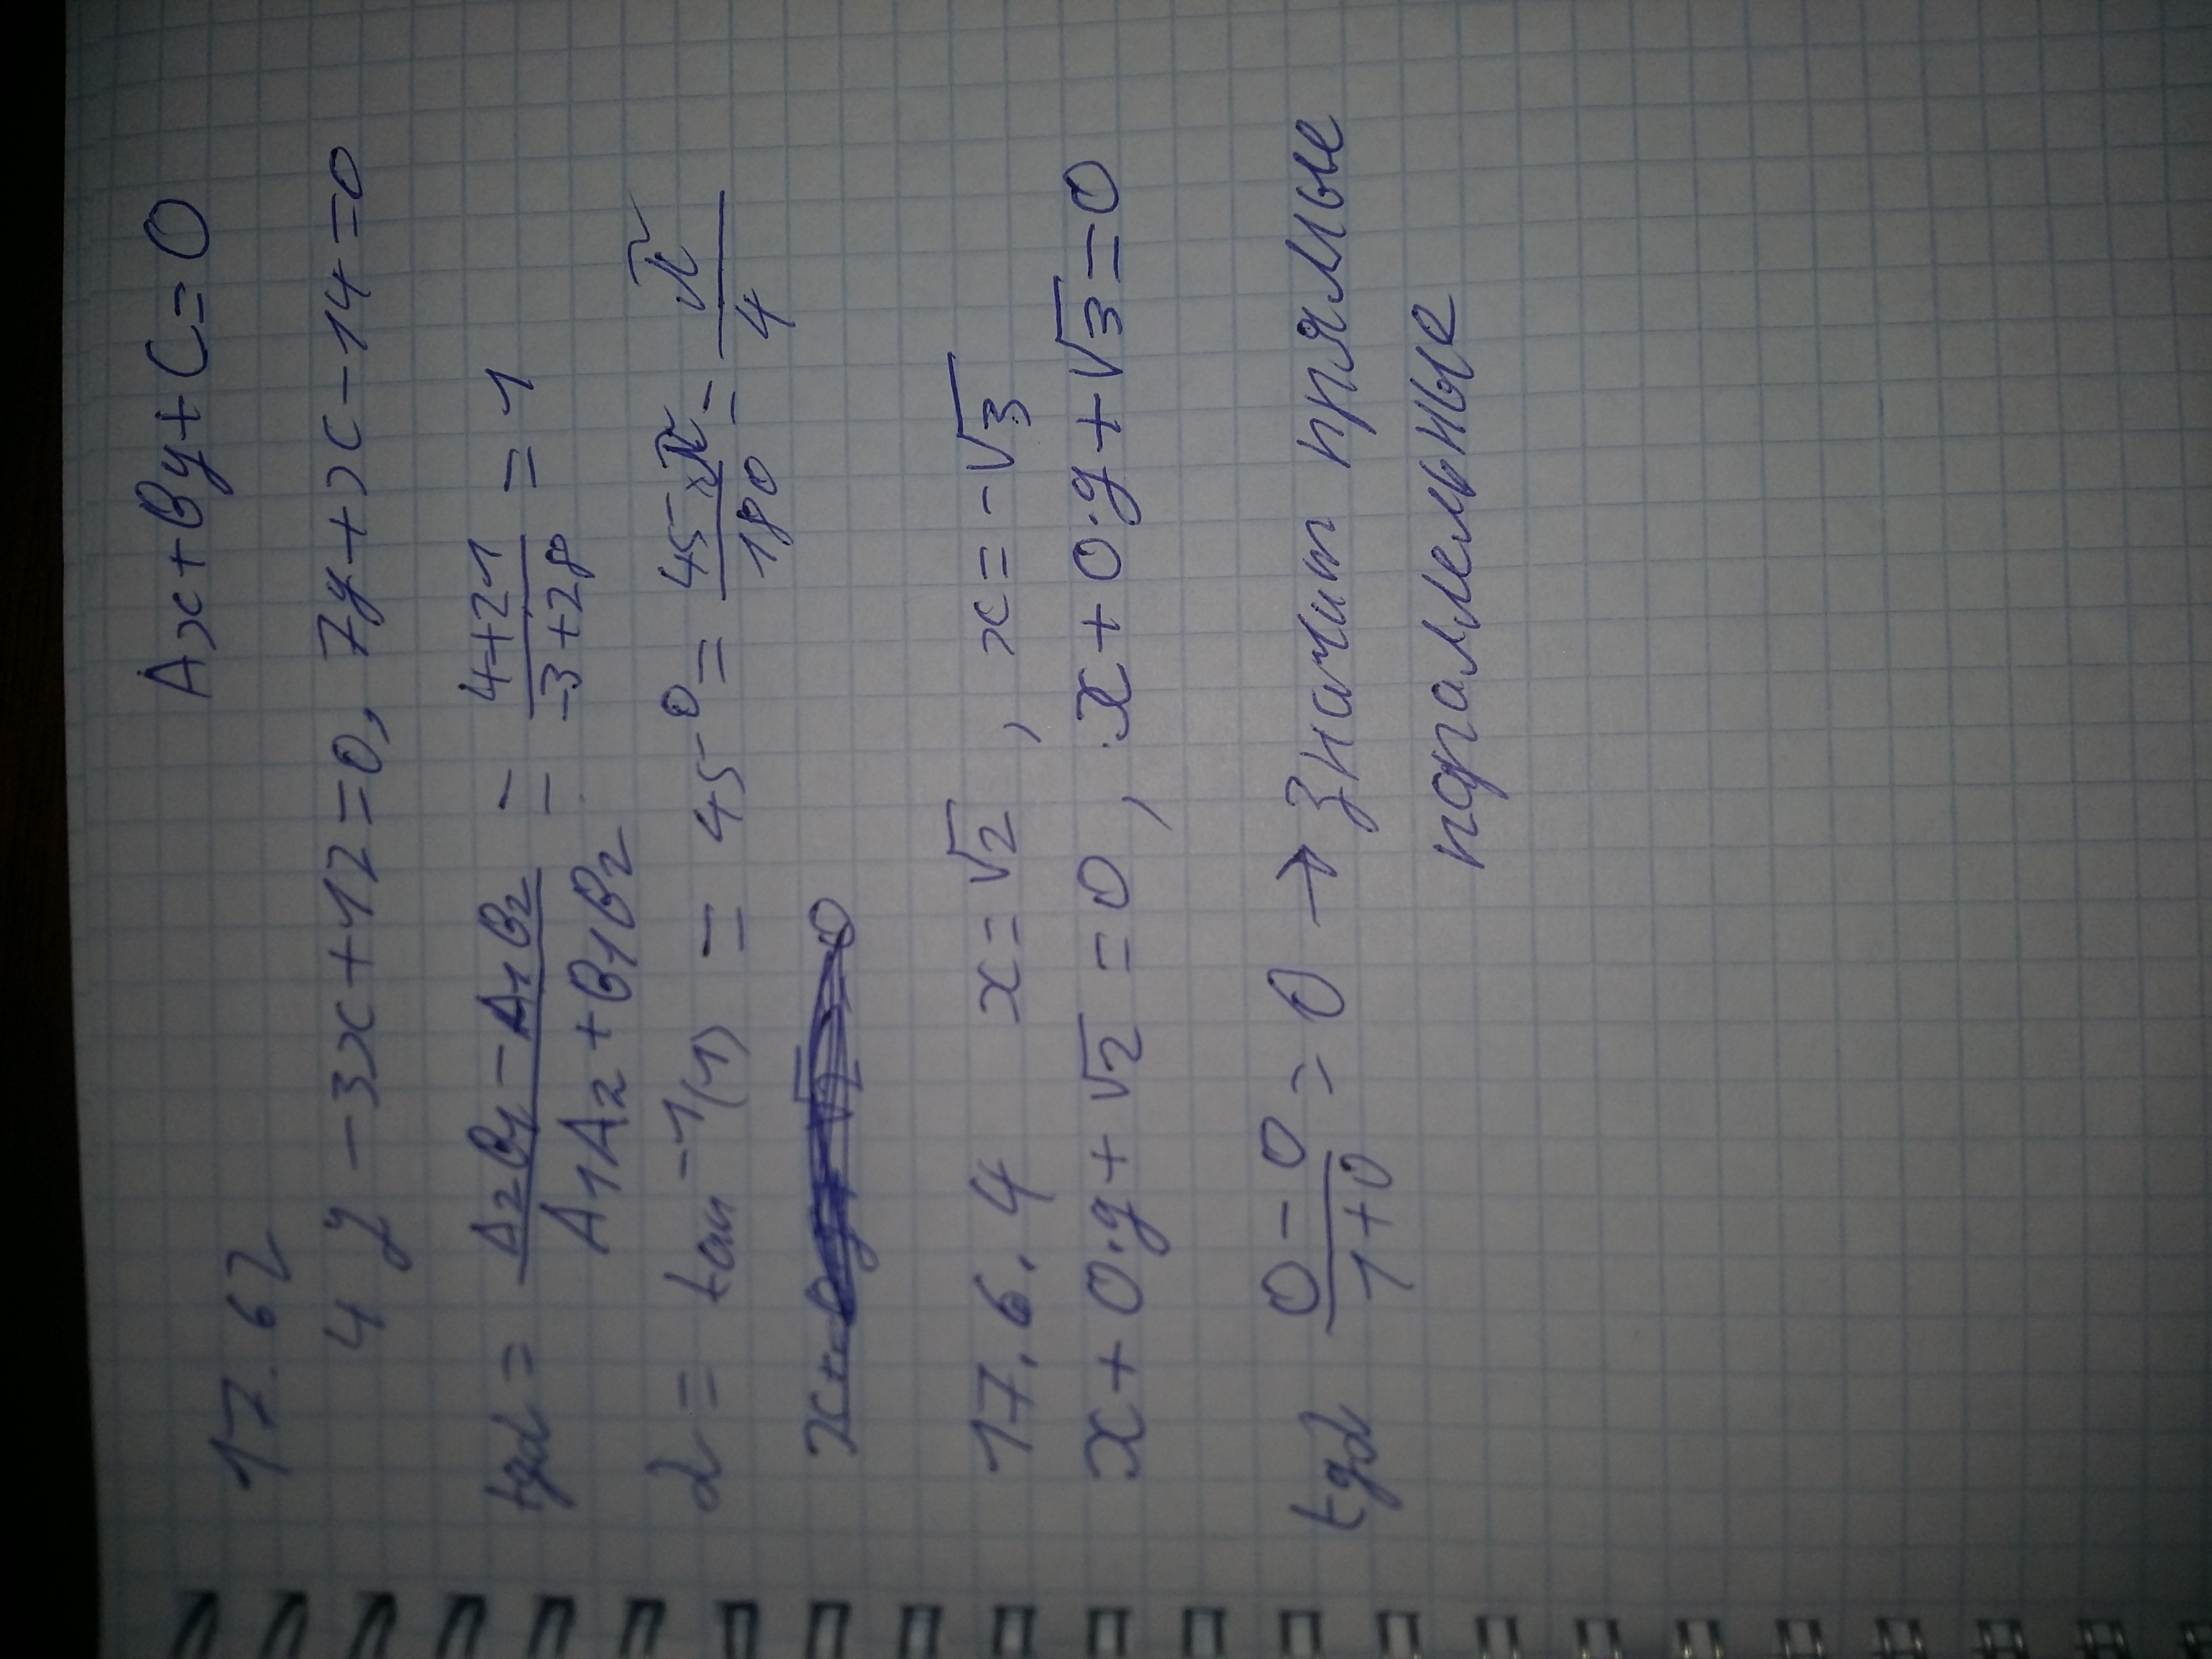 Ax+By+C=0
17.62
4y-3x+12=0, 7y+x-14=0
tgα = (A₂B₁-A₁B₂)/(A₁A₂+B₁B₂) = (4+21)/(-3+28) = 1
α = tan⁻¹(1) = 45° = (45·π)/180 = π/4
17.6.4 x=√2, x=-√3
x+0·y+√2=0, x+0·y+√3=0
tgα (0-0)/(1+0) = 0 → Значит прямые
параллельные